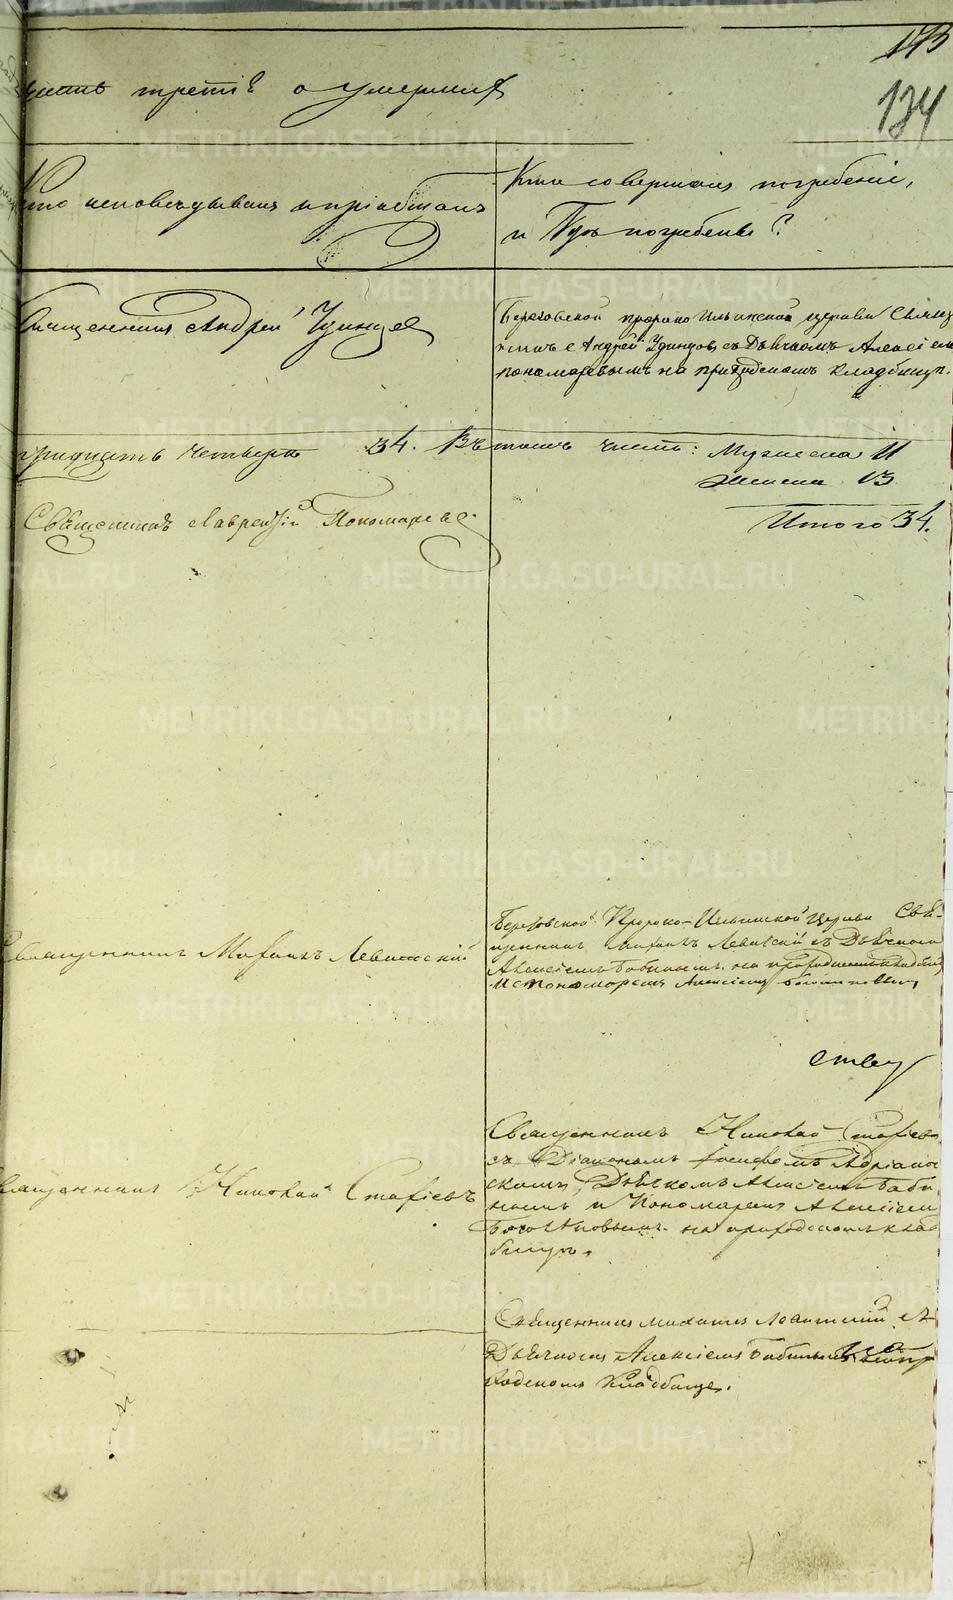 173
134
часть третія о умершихъ
Кто исповѣдывалъ и пріобщалъ
Кто совершалъ погребеніе,
и Гдѣ погребены?
Священникъ Андрей Удинцев
Березовской пророко Ильинской церкви Священ
никъ Андрей Удинцовъ съ Дьячкомъ Алексіем
пономаревымъ на приходскомъ кладбищѣ.
тридцать четверто 34. Въ томъ числѣ: Мужеска
Женска 13
Итого 34.
Священникъ Лаврентій Пономарев
Священникъ Михаилъ Левитскій
Березовской Пророко-Ильинской Церкви Свя-
щенникъ Михаилъ Левитскій съ Дьячкомъ
Алексіемъ Бабинымъ на приходскомъ
и Пономаремъ Алексіемъ
Священникъ Николай Стафіевъ
Священникъ Николай Стафіевъ
съ Діакономъ Іосифомъ Адріанов
скимъ, Дьячкомъ Алексіемъ Баби
нымъ и Пономаремъ Алексіем
на приходскомъ клад
бищѣ.
Священникъ Михаилъ Левитскій съ
Дьячкомъ Алексіемъ Бабинымъ на при
ходскомъ Кладбище.
METRIKI.GASO-URAL.RU